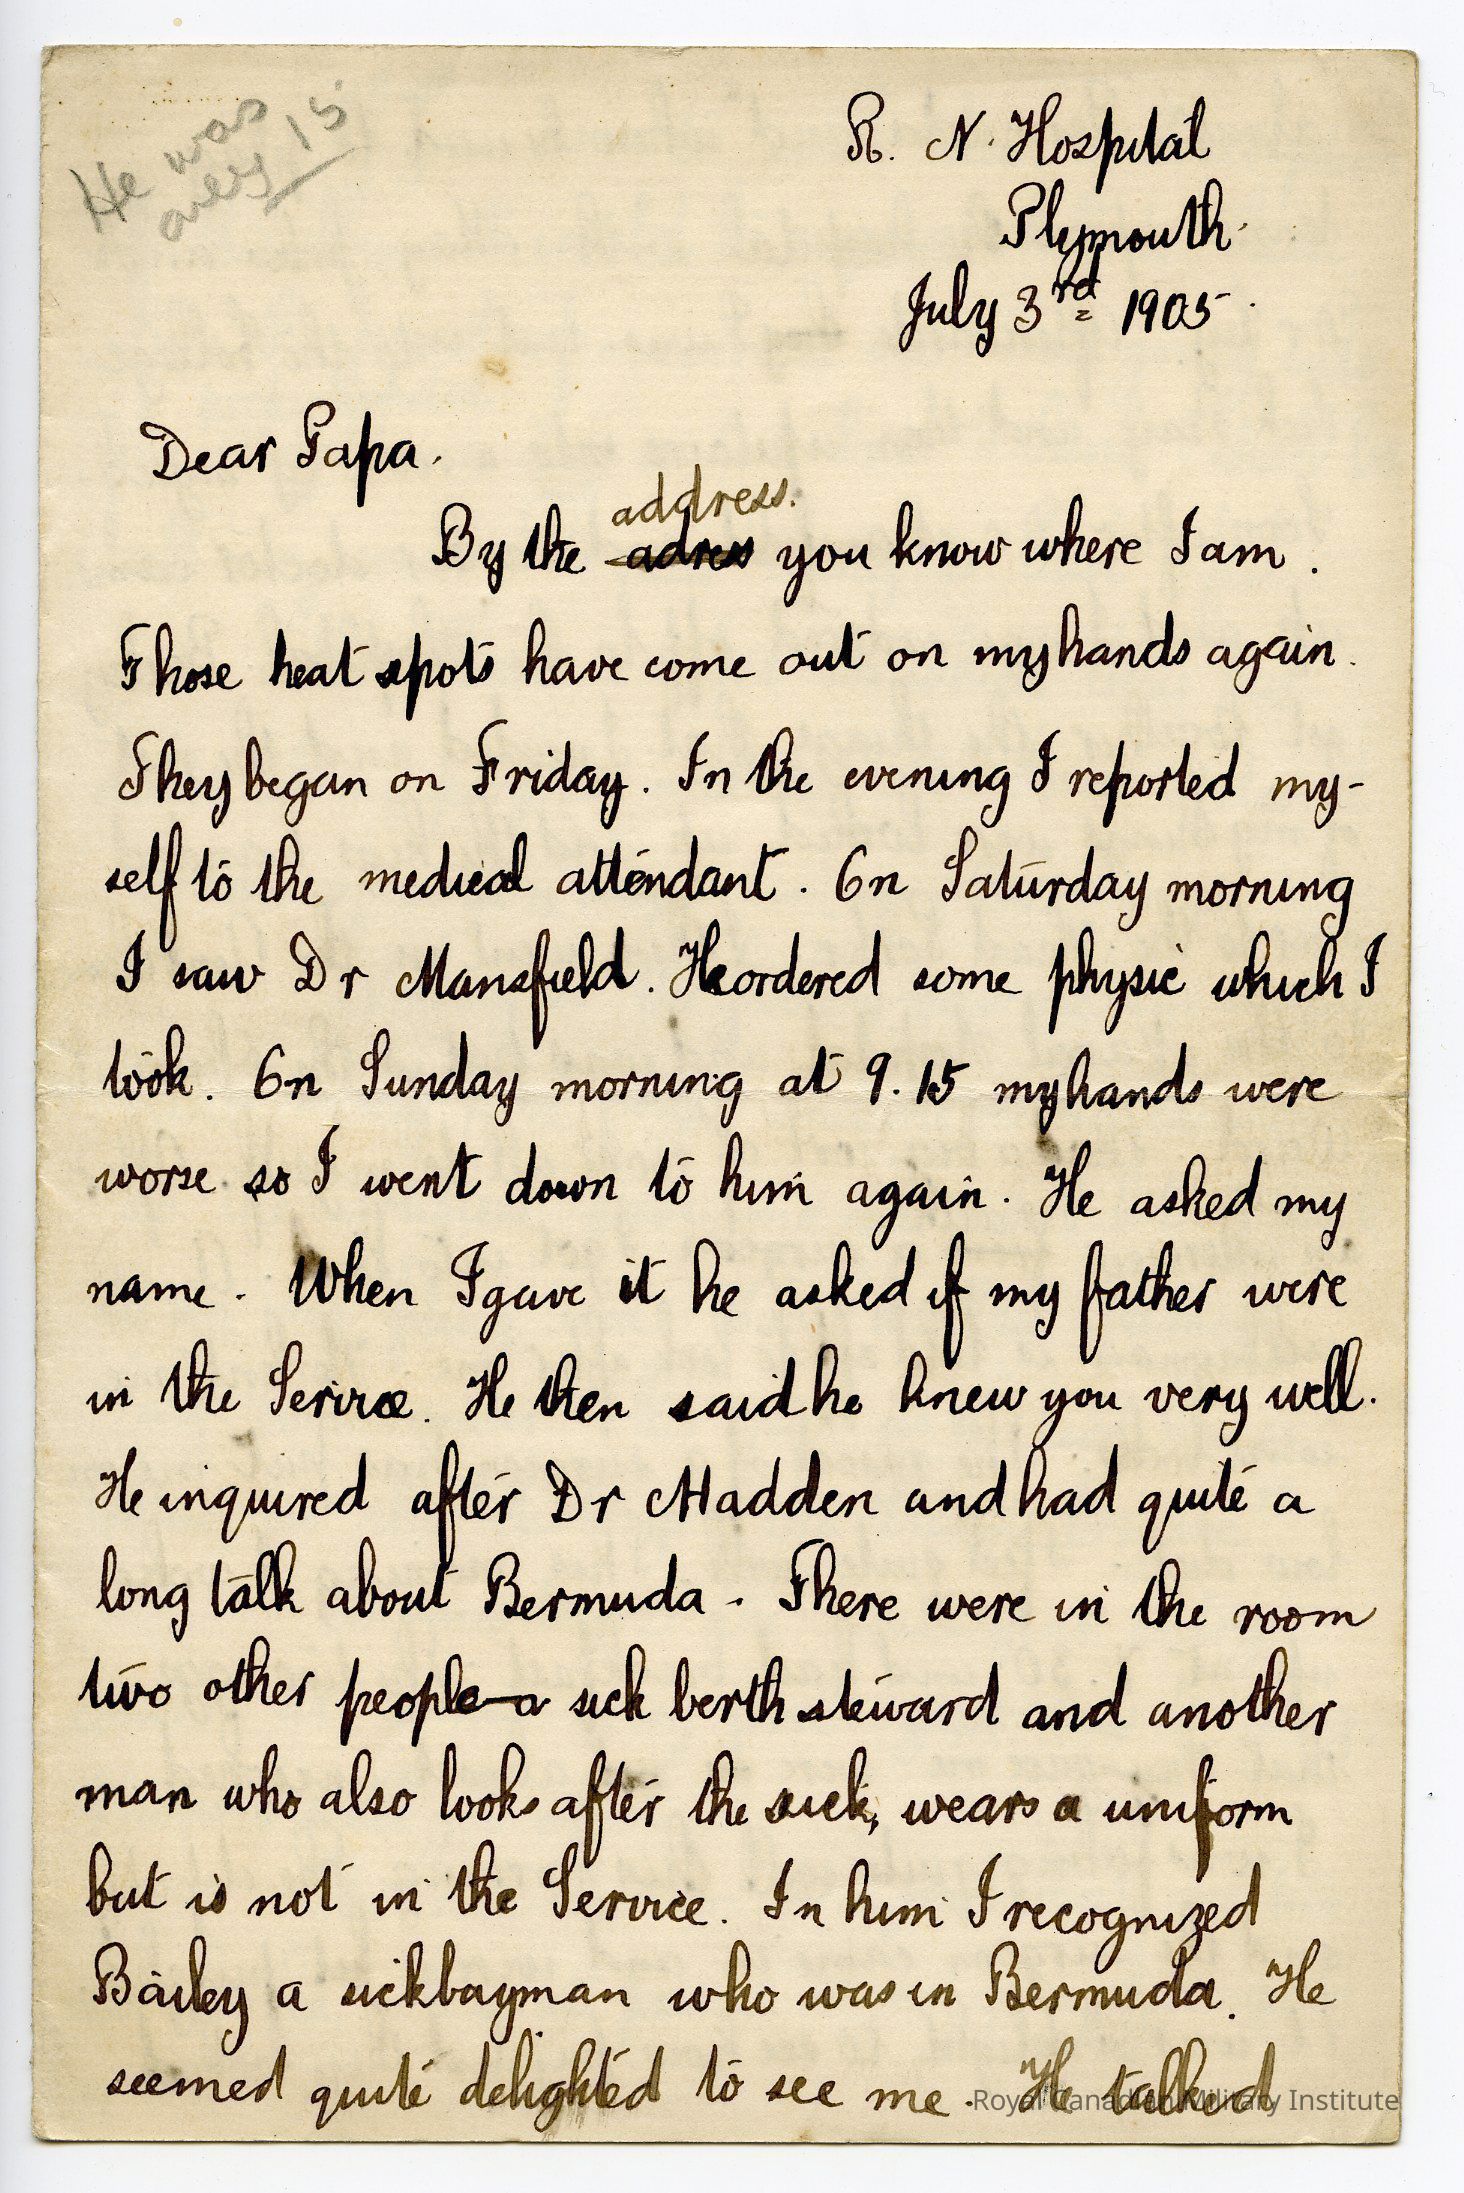 He was
only 15
R. N. Hospital
Plymouth.
July 3rd 1905.
Dear Papa.
address.
By the adress you know where I am.
Those heat spots have come out on my hands again.
They began on Friday. In the evening I reported my-
self to the medical attendant. On Saturday morning
I saw Dr Mansfield. He ordered some physic which I
took. On Sunday morning at 9.15 my hands were
worse so I went down to him again. He asked my
name. When I gave it he asked if my father were
in the Service. He then said he knew you very well.
He inquired after Dr Madden and had quite a
long talk about Bermuda. There were in the room
two other people—a sick berth steward and another
man who also looks after the sick, wears a uniform
but is not in the Service. In him I recognized
Bailey a sickbayman who was in Bermuda. He
seemed quite delighted to see me. He talked
Royal Canadian Military Institute